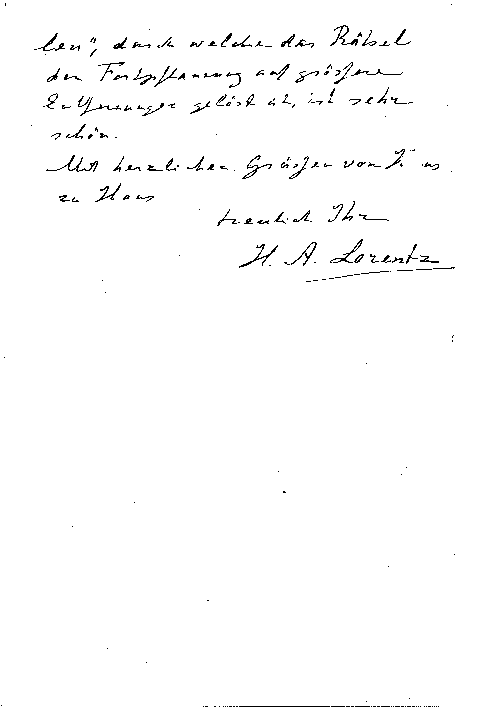 len", durch welche das Rätsel
der Fortpflanzung auf grössere
Entfernungen gelöst ist, ist sehr
schön.
Mit herzlichen Grüssen von Haus
zu Haus
treulich Ihr
H. A. Lorentz